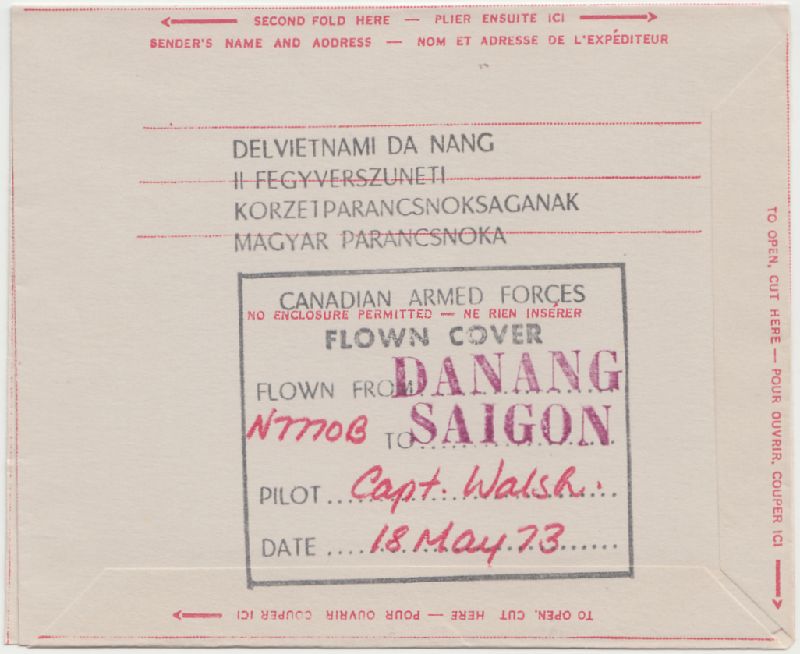 SECOND FOLD HERE — PLIER ENSUITE ICI
SENDER'S NAME AND ADDRESS — NOM ET ADRESSE DE L'EXPÉDITEUR
DELVIETNAMI DA NANG
II FEGYVERSZUNETI
KORZETPARANCSNOKSAGANAK
MAGYAR PARANCSNOKA
CANADIAN ARMED FORCES
NO ENCLOSURE PERMITTED — NE RIEN INSÉRER
FLOWN COVER
FLOWN FROM DANANG
N7770B TO SAIGON
PILOT Capt. Walsh.
DATE 18 May 73
TO OPEN, CUT HERE — POUR OUVRIR COUPER ICI
TO OPEN, CUT HERE — POUR OUVRIR, COUPER ICI